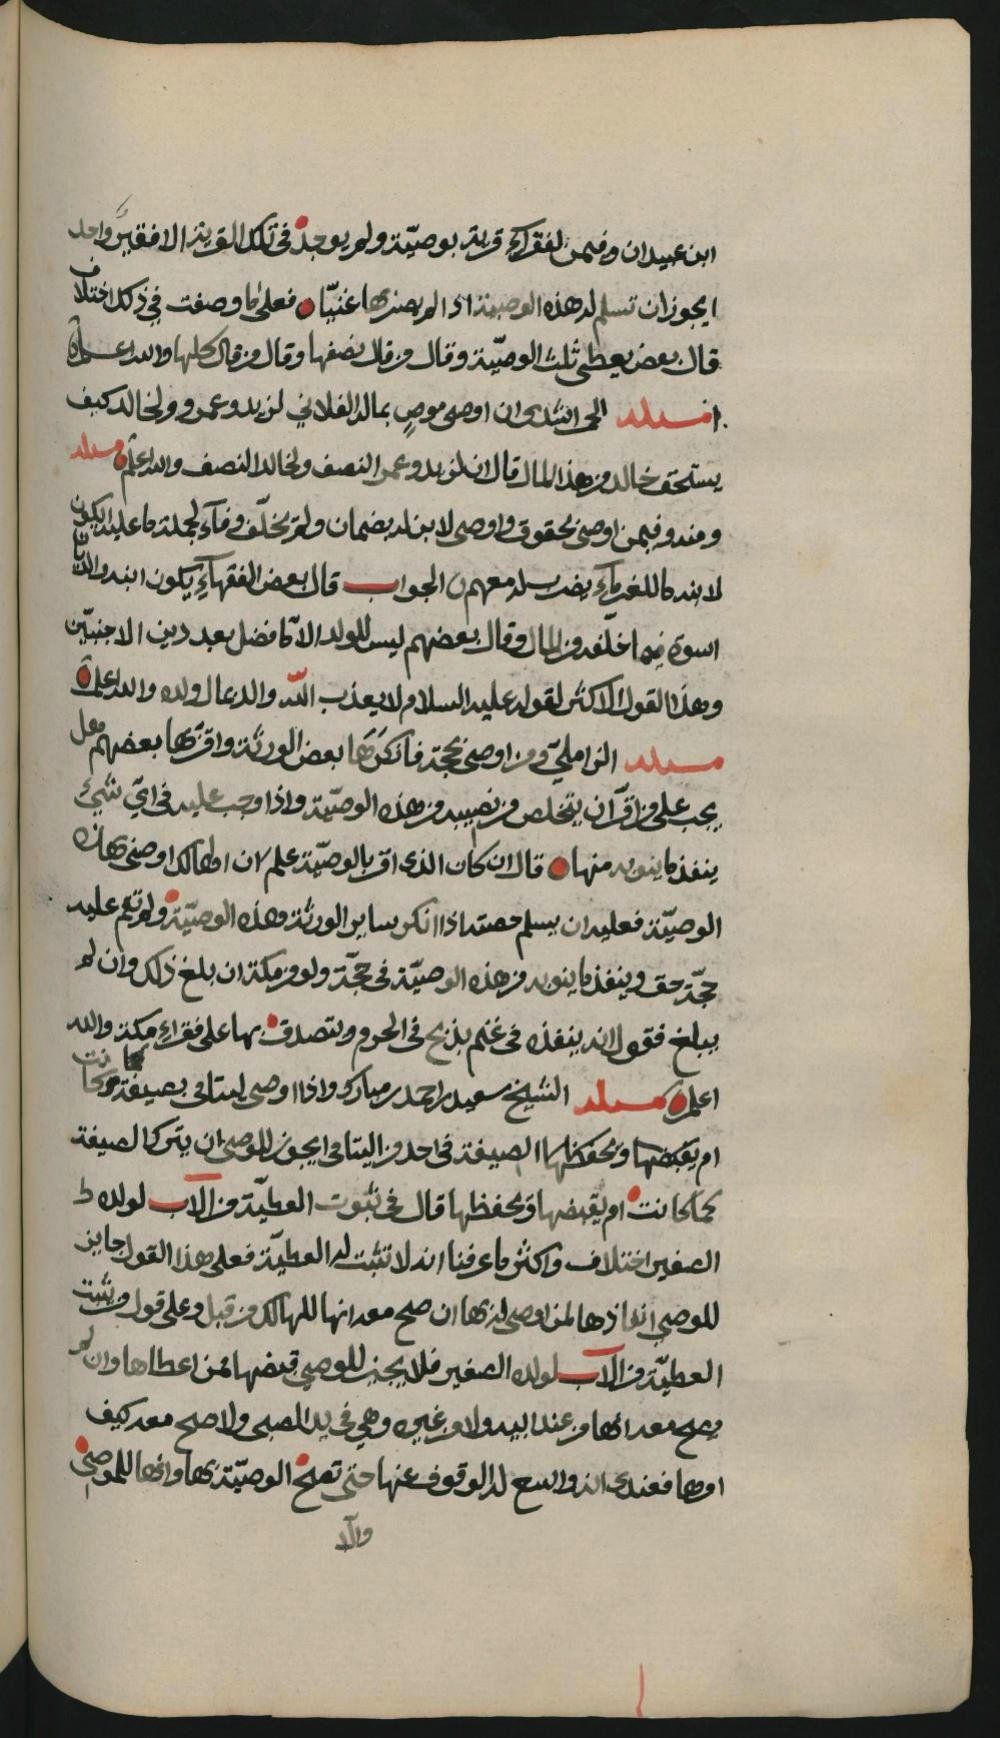 ابن عبيدان وفيمن لفقراء قرية بوصيّة ولم يوجد في تلك القرية الا فقير واحد
ايجوز ان تسلم له هذه الوصية اذا لم يصر بها غنيّا فعلى ما وصفت في ذلك اختلاف
قال بعض يعطى ثلث الوصيّة وقال من قال نصفها وقال من قال كلها والله اعلم
مسئلة ان اوصى موصٍ بماله الفلاني لزيد وعمرو ولخالد كيف
يستحق خالد من هذا المال قال ان لزيد وعمر النصف ولخالد النصف والله اعلم مسئلة
ومنه وفيمن اوصى بحقوق واوصى لابن له بضمان ولم يخلّف وفآء لجملة ما عليه ايكون
لابنه كا للغرمآء يضرب له معهم الجواب قال بعض الفقهآء يكون ابنه والديان
اسوة فيما خلفه من المال وقال بعضهم ليس للولد الا ما فضل بعد دين الاجنبيّين
وهذا القول الاكثر لقوله عليه السلام لا يعذب اللّه والدعال ولده والله اعلم
مسئلة الزامليّ ومن اوصى بحجة فانكرَهَا بعض الورثة واقرّ بها بعضهم هل
يجب على من اقرّ ان يتخلص من نصيبه من هذه الوصيّة واذا وجب عليه في ايّ شيء
ينفذ ما ينوبه منها قال ان كان الذى اقر بالوصيّة علم ان الهالك اوصى بهاذه
الوصيّة فعليه ان يسلم حصته اذا انكر ساير الورثة وهذه الوصيّة ولم تقم عليه
حجّة حق وينفذ ما ينوبه من هذه الوصيّة في حجّة ولو من مكة ان بلغ ذلك وان لم
يبلغ فقول انه ينفذه في غنم يذبح في الحرم ويتصدق بها على فقراء مكة والله
اعلم مسئلة الشيخ سعيد بن احمد بن مبارك واذا اوصى ليتامى بصيغة كما كانت
ام يقبضها ويحفظها الصيغة في احد من اليتامى ايجوز للوصى ان يترك الصيغة
كما كانت ام يقبضها ويحفظها قال في ثبوت العطيّة من الاب لولده
الصغير اختلاف واكثر ما عرفنا انه لا تثبت له العطيّة فعلى هذا القول جايز
للوصي انفاذها لمن اوصى له بها ان صح معه انها للهالك من قبل وعلى قول من يثبت
العطيّة من الاب لولده الصغير فلا يجوز للوصي قبضها ممن اعطاها وان لم
يصح معه انها من عند ابيه ولا من غيره وهي في يد الصبى ولا صح معه كيف
امرها فعندى انه واسع له الوقوف عنها حتى تصح الوصيّة بها وانها للموصى
والا